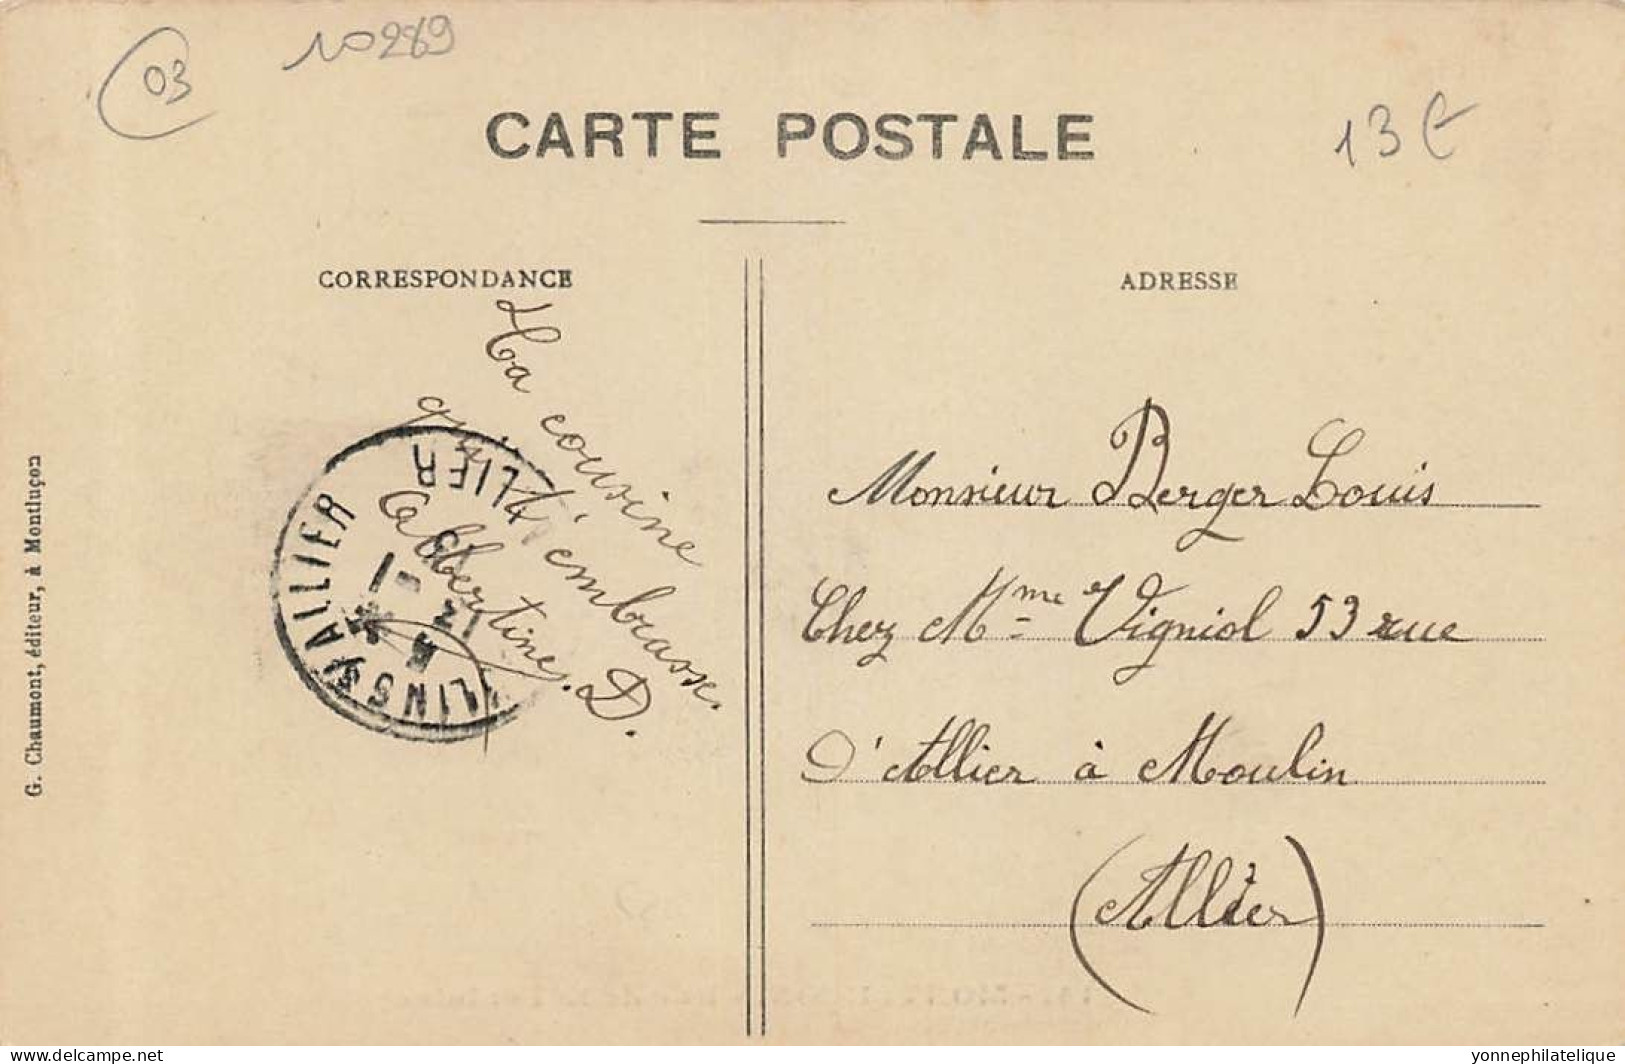 03
10289
13€
CARTE POSTALE
CORRESPONDANCE
ADRESSE
Ta cousine
qui t'embrasse.
Albertine. D.
LINS ALLIER
ALLIER
Monsieur Berger Louis
Chez Mme Vigniol 53 rue
D'Allier à Moulin
(Allier)
G. Chaumont, éditeur, à Montluçon
yonnephilatelique
www.delcampe.net